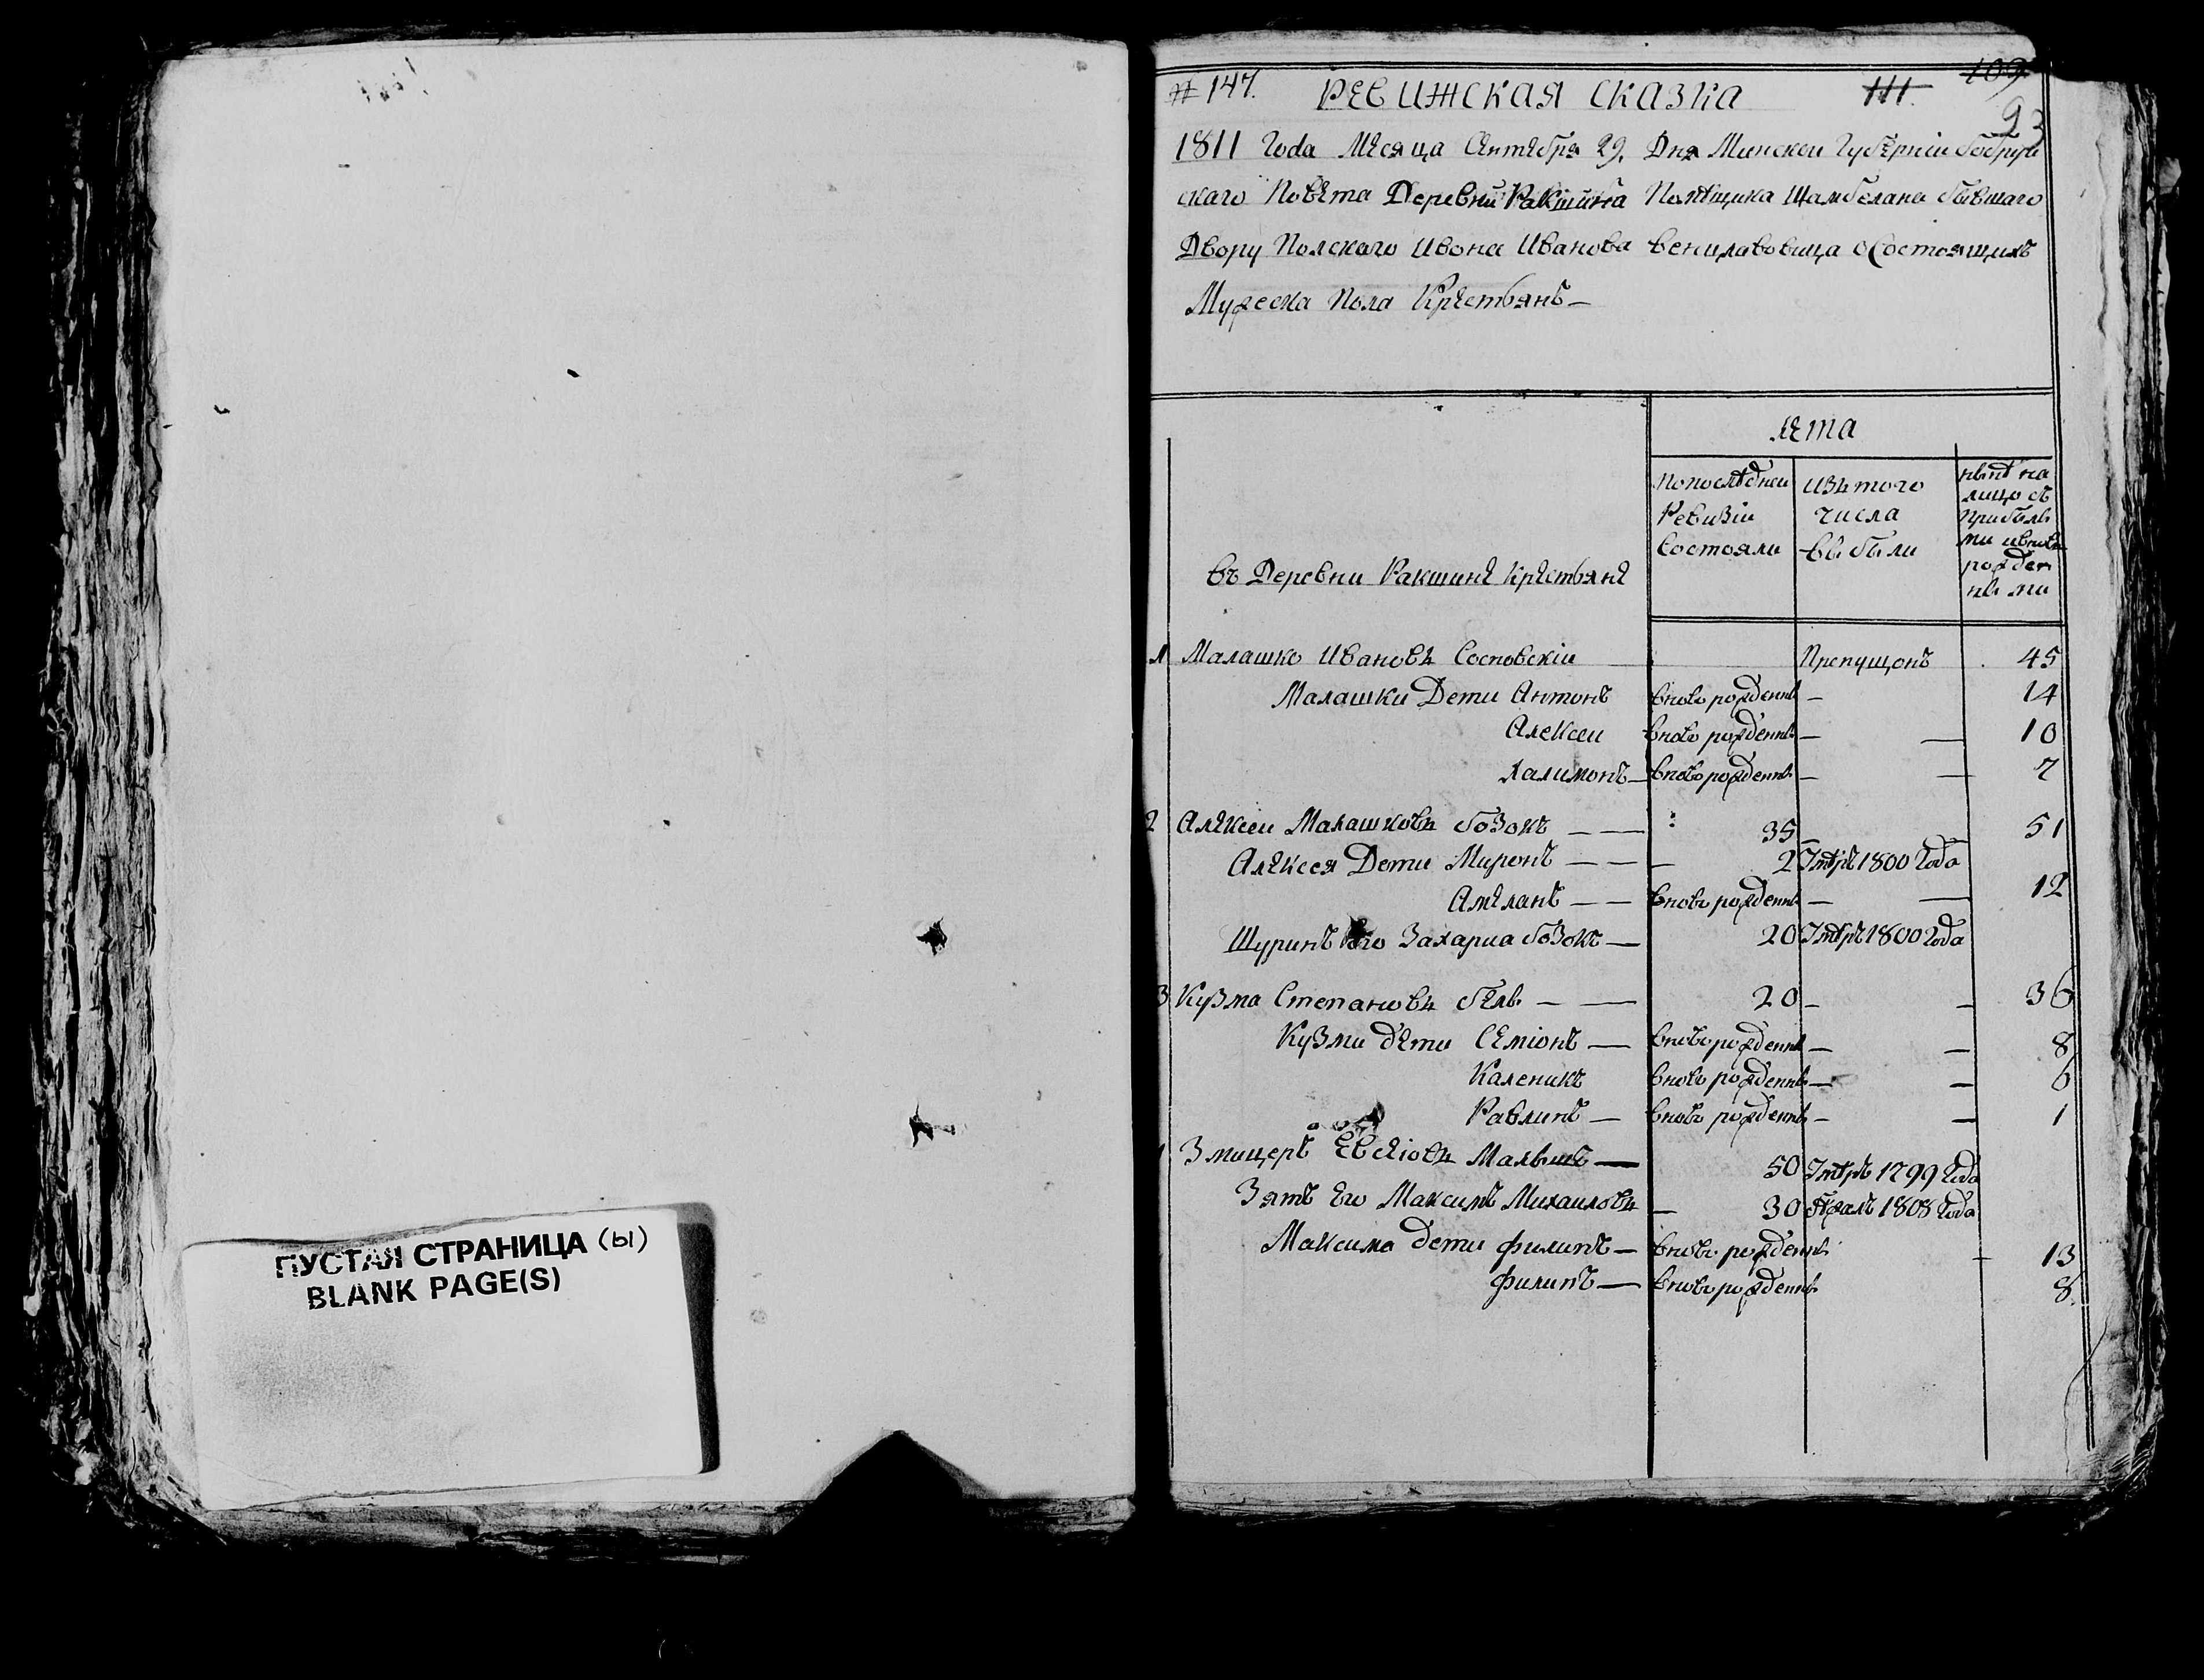 ПУСТАЯ СТРАНИЦА (ы)
BLANK PAGE(S)
# 147. РЕВИЖСКАЯ СКАЗКА 111. 109
93
1811 Года Мѣсяца Сентября 29. Дня Минской Губерніи бобруй
скаго Повѣта Деревни Ракшина Помѣщика Шамбелана бывшаго
Двору Полскаго Ивана Иванова Венцлавовича о состоящихъ
Мужеска Пола Крѣстьянъ —
лѣта
въ Деревни Ракшинѣ Крѣстьянѣ
Попослѣдней Ревизіи Состояли
изъ того числа выбыли
нынѣ на лицо съ прибыли ми и вновь рожден ными
1 Малашко Ивановъ Сосновскій Препущонъ 45
Малашки Дети Антонъ вново рожденны — 14
Алексеи вново рожденны — — 10
Халимонъ — вново рожденны — — 7
2 Алѣксеи Малашковъ бозокъ — — 35 — 51
Алѣксея Дети Миронъ — — — 2 Умѣръ 1800 Года
Амѣланъ — — вново рожденны — — 12
Шуринъ его Захариа бозокъ — 20 Умѣръ 1800 Года
3 Кузма Степановъ бѣлы — — 20 — — 36
Кузми дѣти Семіонъ — вново рожденны — — 8
Каленикъ вново рожденны — — 6
Равлинъ — вново рожденны — — 1
Змицеръ Евсѣіовъ Малышъ — 50 Умѣръ 1799 Года
Зять Его Максимъ Михаиловъ — 30 бѣжалъ 1808 Года
Максима дети филипъ — вново рожденны — 13
филипъ — вново рожденны 8